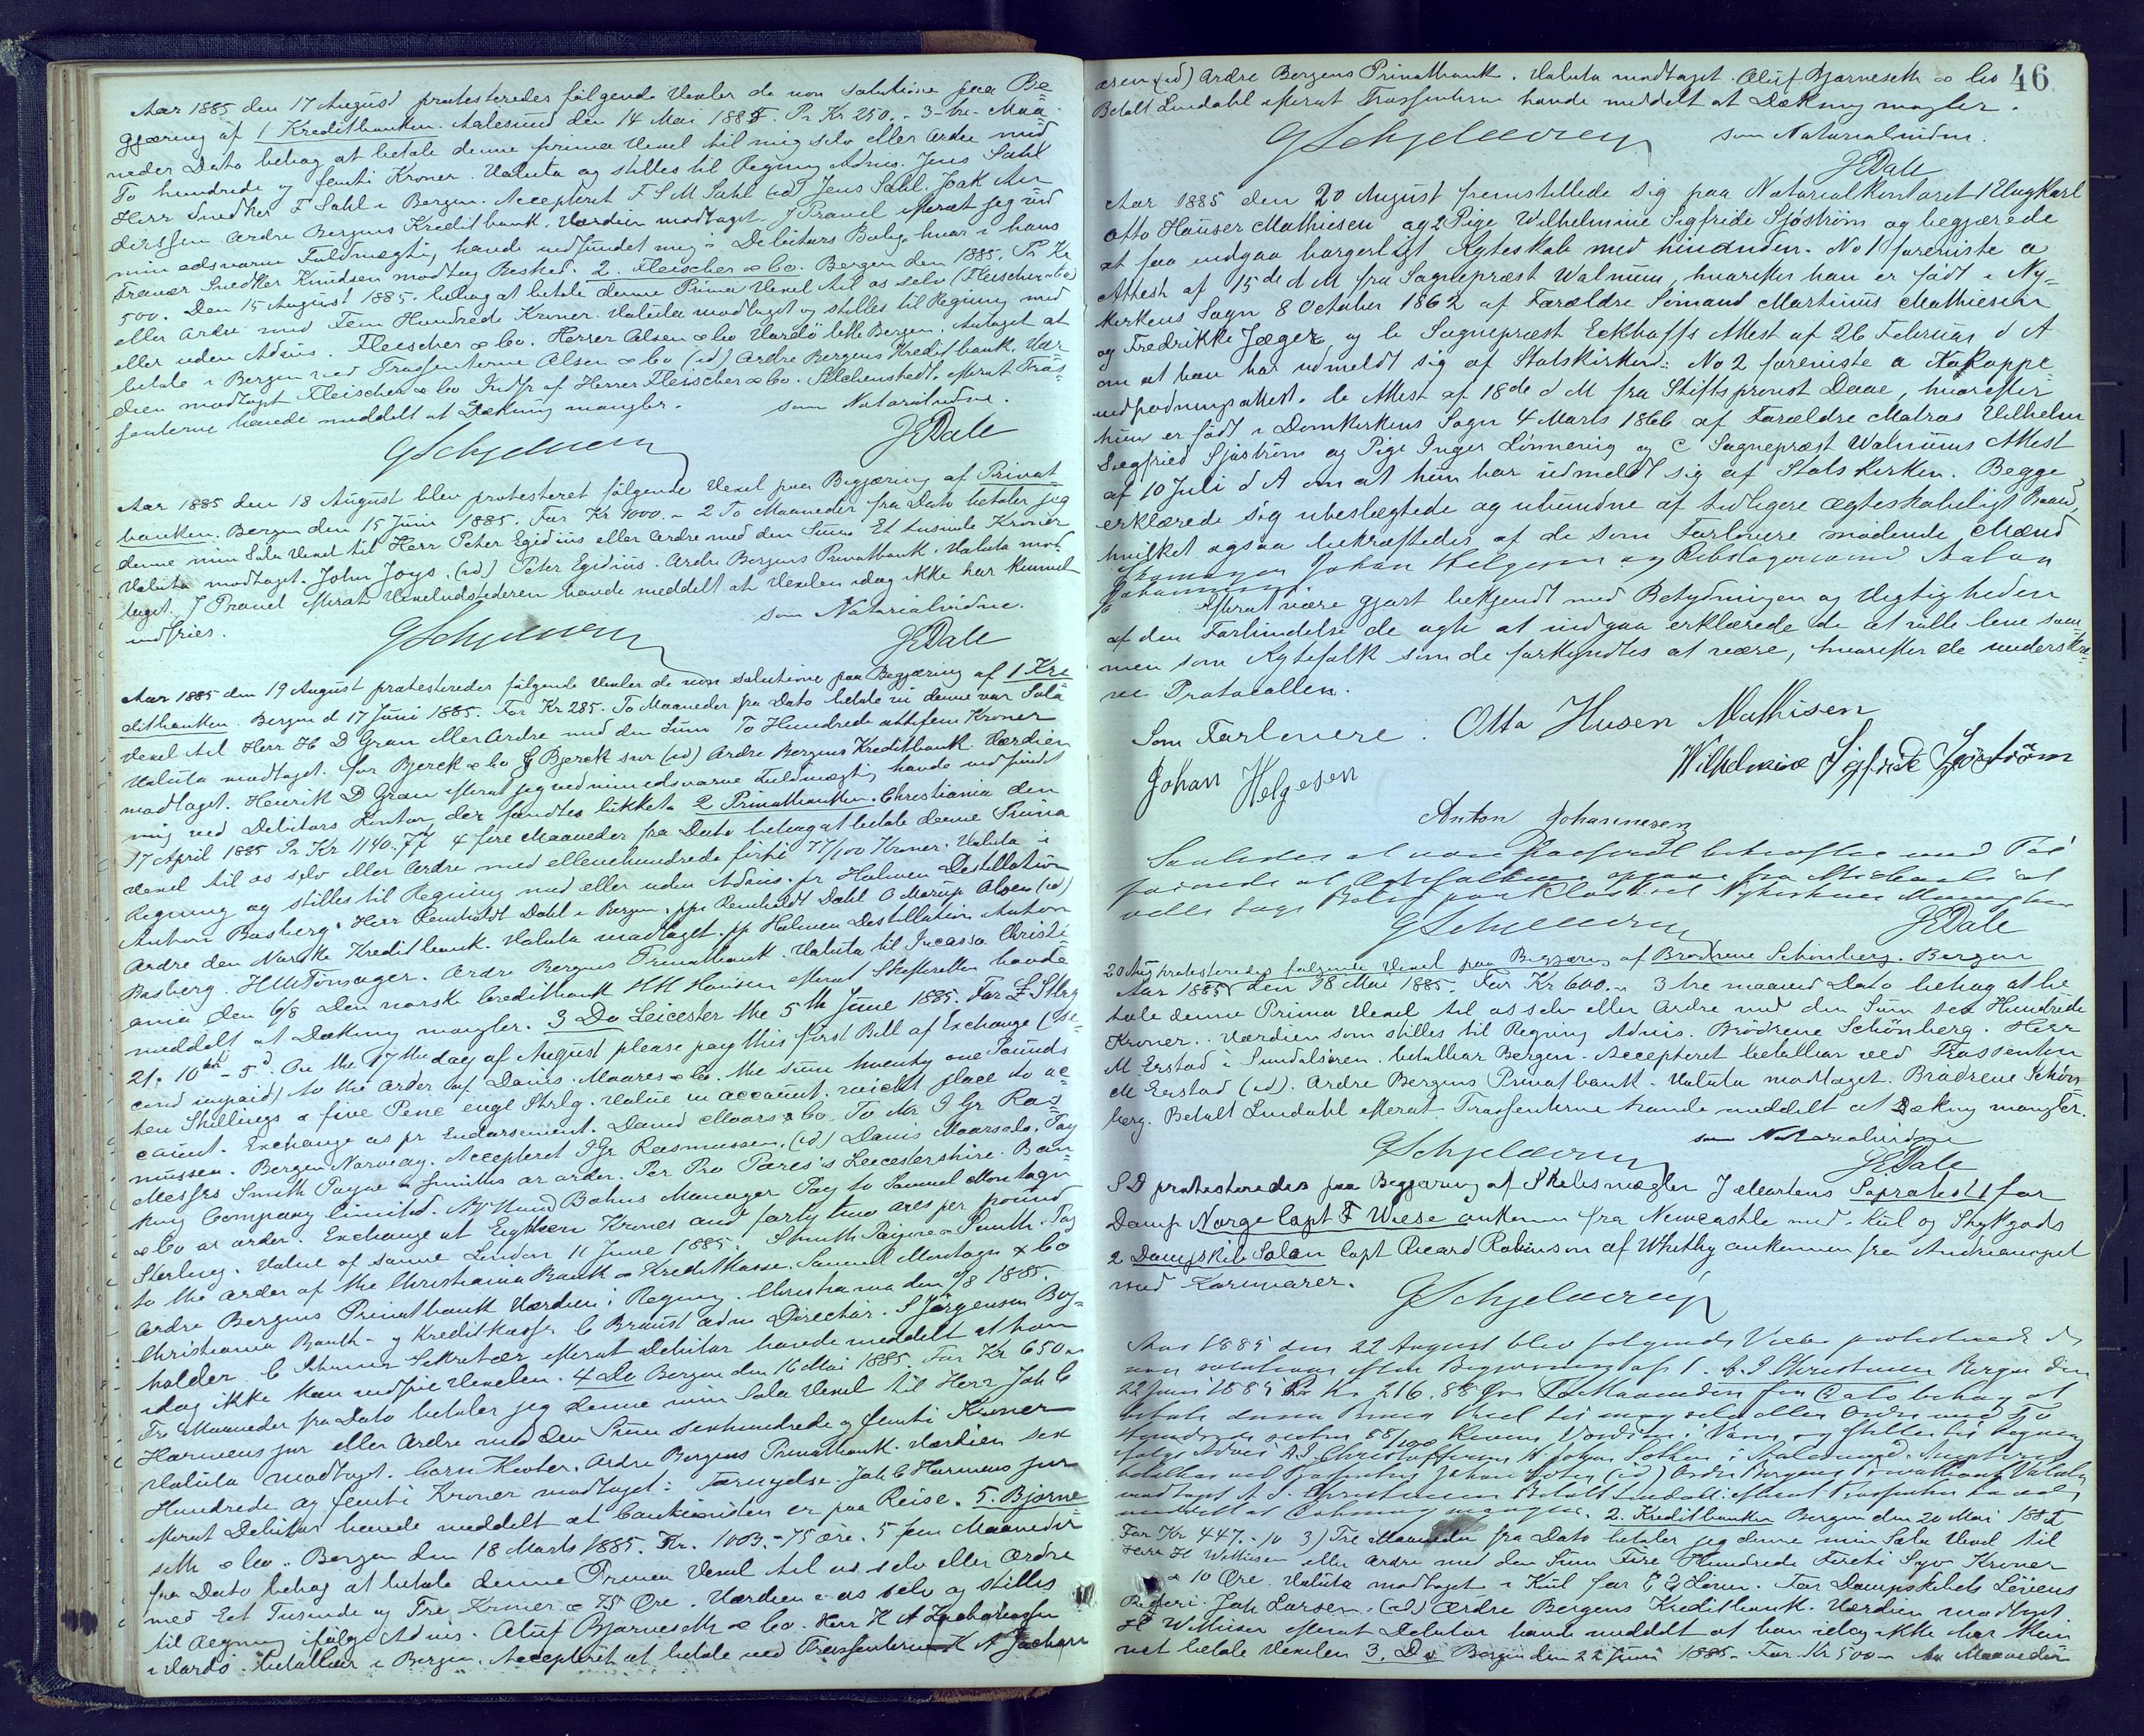 Aar 1885 den 17 August protesteredes følgende Vexler de non solutione paa Be=
gjæring af 1 Kreditbanken. Aalesund den 14 Mai 1885. Pr Kr 250.- 3-tre-Maa=
neder Dato behag at betale denne prima Vexel til mig selv eller Ordre med
To hundrede og femti Kroner. Valuta og stilles til Regning Advis. Jens Sahl
Herr Snedker F Sahl i Bergen. Accepteret F S M Sahl (id) Jens Sahl. Joak An
derssen Ordre Bergens Kreditbank. Værdien modtaget. J Pravel efterat jeg ved
min edsvorne Fuldmægtig havde indfundet mig i Debitors Bolig, hvor i hans
Fravær Snedker Knudsen modtog Besked. 2. Fleischer & Co. Bergen den 1885. Pr Kr
500. Den 15 August 1885. behag at betale denne Prima Vexel til os selv (Fleischer & Co)
eller Ordre med Fem Hundrede Kroner. Valuta modtaget og stilles til Regning med
eller uden Advis. Fleischer & Co. Herrer Olsen & Co Vardø bttb Bergen. Antaget at
betale i Bergen ved Trassenterne Olsen & Co (id) Ordre Bergens Kreditbank. Vær
dien modtaget Fleischer & Co Indfr af Herrer Fleischer & Co. efterat Tras=
senterne havde meddelt at Dækning mangler.
som Notarialvidne.
GSchjelderup
JEDale
Aar 1885 den 18 August blev protesteret følgende Vexel paa Begjæring af Privat
banken. Bergen den 15 Juni 1885. For Kr 1000.- 2 To Maaneder fra Dato betaler jeg
denne min Sola Vexel til Herr Peter Egidius eller Ordre med den Sum Et tusinde Kroner
Valuta modtaget. John Joys. (id) Peter Egidius. Ordre Bergens Privatbank. Valuta mod
taget. J Pravel efterat Vexeludstederen havde meddelt at Vexelen idag ikke har kunnet
indfries.
som Notarialvidne.
GSchjelderup
JEDale
Aar 1885 den 19 August protesteredes følgende Vexler de non solutione paa Begjæring af 1 Kre
ditbanken. Bergen d 17 Juni 1885. For Kr 285. To Maaneder fra Dato betale vi denne vor Sola
Vexel til Herr H D Gran eller Ordre med den Sum To Hundrede ottifem Kroner
Valuta modtaget. for Bjerck & Co G Bjerck snr (id) Ordre Bergens Kreditbank. Værdien
modtaget. Henrik D Gran efterat jeg ved min edsvorne Fuldmægtig havde indfundet
mig ved Debitors Kontor, der fandtes lukket. 2 Privatbanken. Christiania den
17 April 1885 Pr Kr 1140.77 4 fire Maaneder fra Dato behag at betale denne Prima
Vexel til os selv eller Ordre med ellevehundrede firti 77/100 Kroner. Valuta i
Regning og stilles til Regning med eller uden Advis. pr Holmen Destillation
Anton Basberg. Herr Reinholdt Dahl i Bergen. ppr Reinholdt Dahl O Morup Olsen (id)
Ordre den Norske Kreditbank. Valuta modtaget. pp Holmen Destillation Anton
Basberg. H M Tønsager. Ordre Bergens Privatbank. Valuta til Incasso Christi=
ania den 6/8 Den norske Creditbank HH Hansen efterat Skifteretten havde
meddelt at Dækning mangler. 3 Do Leicester the 5th June 1885. For £ Stlrg
21.10sh-5d. On the 17th day of August please pay this first Bill of Exchange (se=
cond unpaid) to the order of Davis. Moores & Co. the sum twenty one Pounds
ten Shillings & five Pence engl Strlg. Value in account. which place to ac=
count. Exchange as pr Endorsement. David Moors & Co. To Mr J Gr Ras
mussen. Bergen Norway. Accepteret J Gr Rasmussen. (id) Davis Moors & Co. Pay
Messrs Smith Payne & Smiths or order. Per Pro Pares's Leicestershire. Ban=
king Company limited. Manager Pay to Samuel Montagu
& Co or order. Exchange at Eighteen Krones and forty two ores per pound
Sterling. Value of same London 11 June 1885. Smith Payne & Smith. Pay
to the order of the Christiania Bank & Kreditkasse. Samuel Montagu & Co
Ordre Bergens Privatbank Værdien i Regning. Christiania den 8/8 1885.
Christiania Bank- og Kreditkasse C Braust adm Director. S Jørgensen Bog=
holder. C Sekretær efterat Debitor havde meddelt at han
idag ikke kan indfrie Vexelen. 4 Do Bergen den 16 Mai 1885. For Kr 650.-
Tre Maaneder fra Dato betaler jeg denne min Sola Vexel til Herr Joh C
Harmens jnr eller Ordre med den Sum sexhundrede og femti Kroner
Valuta modtaget. Ordre Bergens Privatbank. Værdien sex
Hundrede og femti Kroner modtaget: Fornyelse. Joh C Harmens jnr
efterat Debitor havde meddelt at Cautionisten er paa Reise. 5. Bjørne
seth & Co. Bergen den 18 Marts 1885. Kr. 1003.-75 øre. 5 fem Maaneder
fra Dato behag at betale denne Prima Vexel til os selv eller Ordre
med Eet Tusinde og Tre Kroner & 75 Øre. Værdien i os selv og stilles
til Regning ifølge Advis. Oluf Bjørneseth & Co. Herr H A Zachariassen
i Vardø. betalbar i Bergen. Accepteret at betale ved Trassenterne H A Zachari
46
æsen (id) Ordre Bergens Privatbank. Valuta modtaget. Oluf Bjørneseth & Co
Betalt Lindahl efterat Trassenterne havde meddelt at Dækning mangler.
GSchjelderup
som Notarialvidne.
JEDale
Aar 1885 den 20 August fremstillede sig paa Notarialkontoret 1 Ungkarl
Otto Hauser Mathiesen og 2 Pige Wilhelmine Sigfride Sjøstrøm og begjærede
at faa indgaa borgerligt Ægteskab med hinanden. No 1 foreviste a
Attest af 15de d M fra Sognepræst Walnum, hvorefter han er født i Ny=
kirkens Sogn 8 October 1862 af Forældre Sømand Martinus Mathiesen
og Fredrikke Jæger, og b Sognepræst Eckhoffs Attest af 26 Februar d A
om at han har udmeldt sig af Statskirken: No 2 foreviste a Kokoppe
indpodningsattest. b Attest af 18de d M fra Stiftsprovst Daae, hvorefter
hun er født i Domkirkens Sogn 4 Marts 1866 af Forældre Matros Vilhelm
Siegfried Sjøstrøm og Pige Inger Lønnevig og C Sognepræst Walnums Attest
af 10 Juli d A om at hun har udmeldt sig af Statskirken. Begge
erklærede sig ubeslægtede og ubundne af tidligere ægteskabeligt Baand,
hvilket ogsaa bekræftedes af de som Forlovere mødende Mænd
Skomager Johan Helgesen og
Johannesen
Efterat være gjort bekjendt med Betydningen og Vigtigheden
af den Forbindelse de agte at indgaa erklærede de at ville leve sam=
men som Ægtefolk som de forkyndtes at være, hvorefter de underskre=
ve Protocollen.
Som Forlovere. Otto Husen Mathisen
Wilhelmine Sigfride Sjöström
Johan Helgesen
Anton Johannesen
GSchjelderup
JEDale
20 Aug protesteredes følgende Vexel paa Begjæring af Brødrene Schönberg. Bergen
Aar 1885 den 18 Mai 1885. For Kr 600.- 3 tre maaned Dato behag at be
tale denne Prima Vexel til os selv eller Ordre med den Sum sex Hundrede
Kroner. Værdien som stilles til Regning Advis. Brödrene Schönberg. Herr
M Erstad i Sundalsøren. betalbar Bergen. Accepteret betalbar ved Trassenten
M Erstad (id). Ordre Bergens Privatbank. Valuta modtaget. Brödrene Schön
berg. Betalt Lindahl efterat Trassenterne havde meddelt at Dækning mangler.
som Notarialvidne
GSchjelderup
JEDale
S D protesteredes paa Begjæring af Skibsmægler J Martens Søprotest 1 for
Damp Norge Capt F Wiese ankommen fra Newcastle med Kul og Stykgods
2 Dampskib Solon Capt Ricard Robinson af Whitby ankommen fra
med Kornvarer.
GSchjelderup
Aar 1885 den 22 August blev følgende Vexler protesterede de
non solutione efter Begjæring af 1. A. J Christensen Bergen den
22 Juni 1885 Kr 216.88 Øre To Maaneder fra Dato behag at
betale denne Prima Vexel til mig selv eller Ordre med To
Hundrede sexten 88/100 Kroner Værdien i Varer og stilles til Regning
2. Kreditbanken Bergen den 20 Mai 1885
For Kr 447.-10 3) Tre Maaneder fra Dato betaler jeg denne min Sola Vexel til
Herr H Witthusen eller Ordre med den Sum Fire Hundrede Firti Syv Kroner
& 10 Øre. Valuta modtaget i Kul for Løven. For Dampskibet Løvens
Rederi. Joh Larsen. (id) Ordre Bergens Kreditbank. Værdien modtaget.
H Witthusen efterat Debitor havde meddelt at han idag ikke har kun
net betale Vexelen 3. Do Bergen den 22 Juni 1885. For Kr 500.- Maaneder